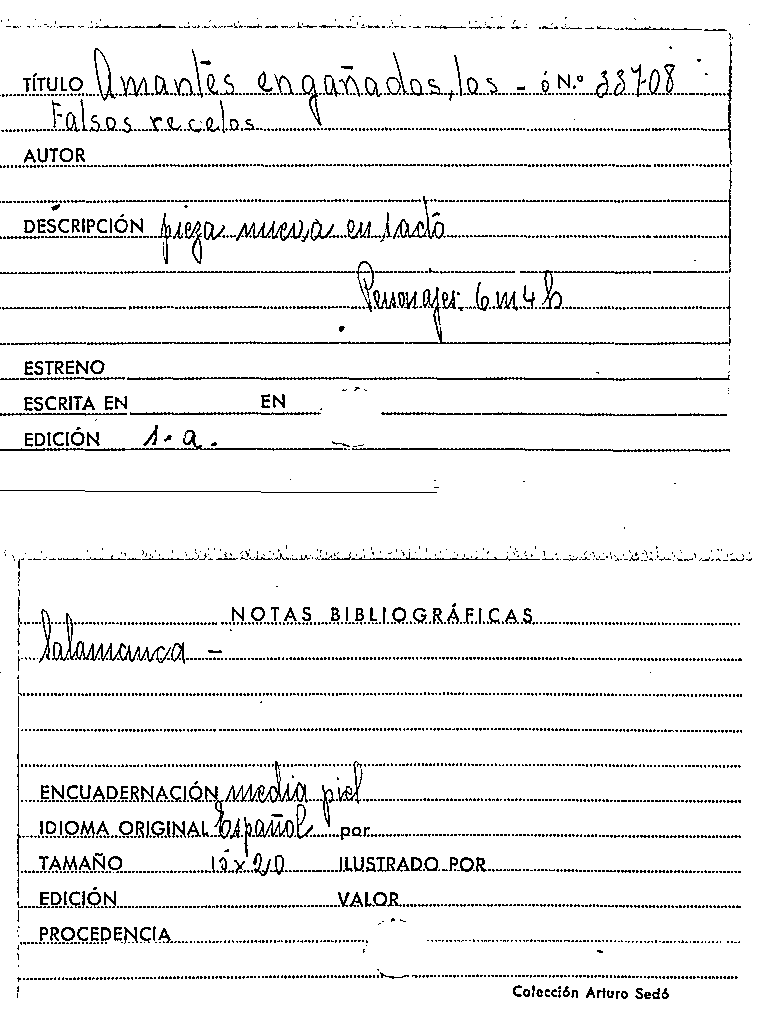 TÍTULO Amantes engañados, los - ó N.º 33708
Falsos recelos
AUTOR
DESCRIPCIÓN pieza nueva en 1 acto
Personajes: 6 m 4 h
ESTRENO
ESCRITA EN EN
EDICIÓN 1.a.
NOTAS BIBLIOGRÁFICAS
Salamanca -
ENCUADERNACIÓN media piel
IDIOMA ORIGINAL Español por
TAMAÑO 15x20 ILUSTRADO POR
EDICIÓN VALOR
PROCEDENCIA
Colección Arturo Sedó